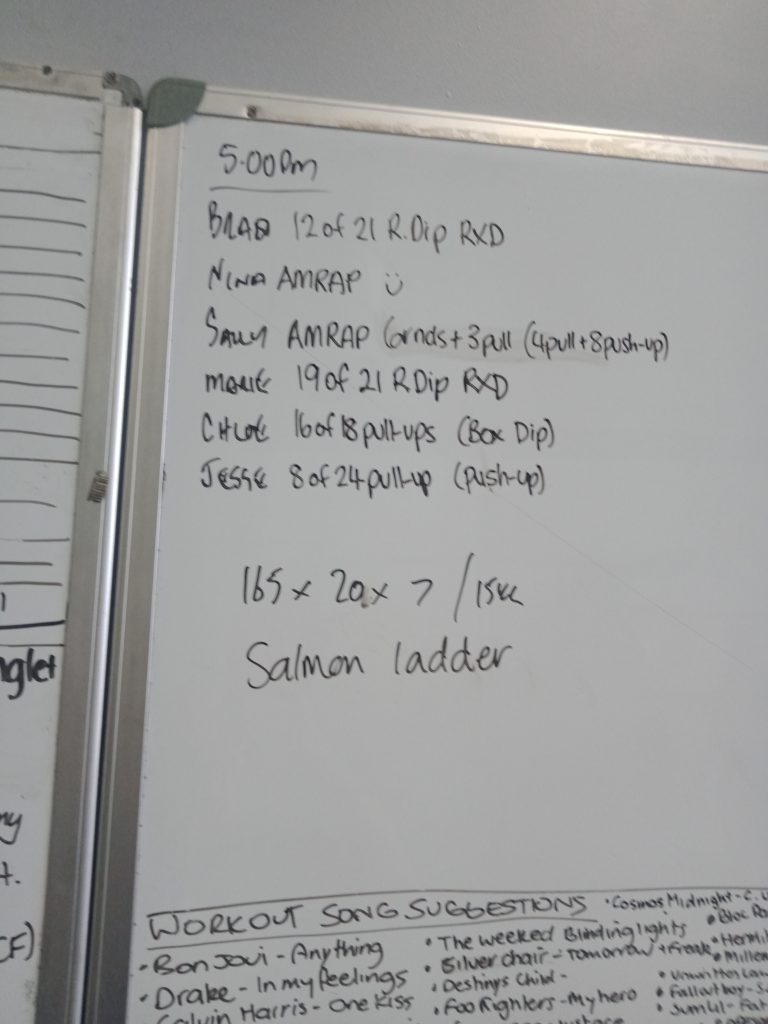 5.00pm
BRAD 12 of 21 R.Dip RXD
NINA AMRAP
SALLY AMRAP 6rnds + 3pull (4pull + 8push-up)
19 of 21 R Dip RXD
CHLOE 16 of 18 pull-ups (Box Dip)
JESSE 8 of 24 pull-up (push-up)
165 x 20 x 7 / 15sec
Salmon ladder
nglet
my
t.
CF)
WORKOUT SONG SUGGESTIONS
• Bon Jovi - Anything
• Drake - In my feelings
Calvin Harris - One Kiss
• The weeked Blinding lights
• Silverchair - Tomorrow + Freak
• Destinys Child -
• Foo Fighters - My hero
• Cosmos Midnight - C. U
• Bloc
• Unwritten Law
• Fallout boy - S
• Sum 41 - Fat